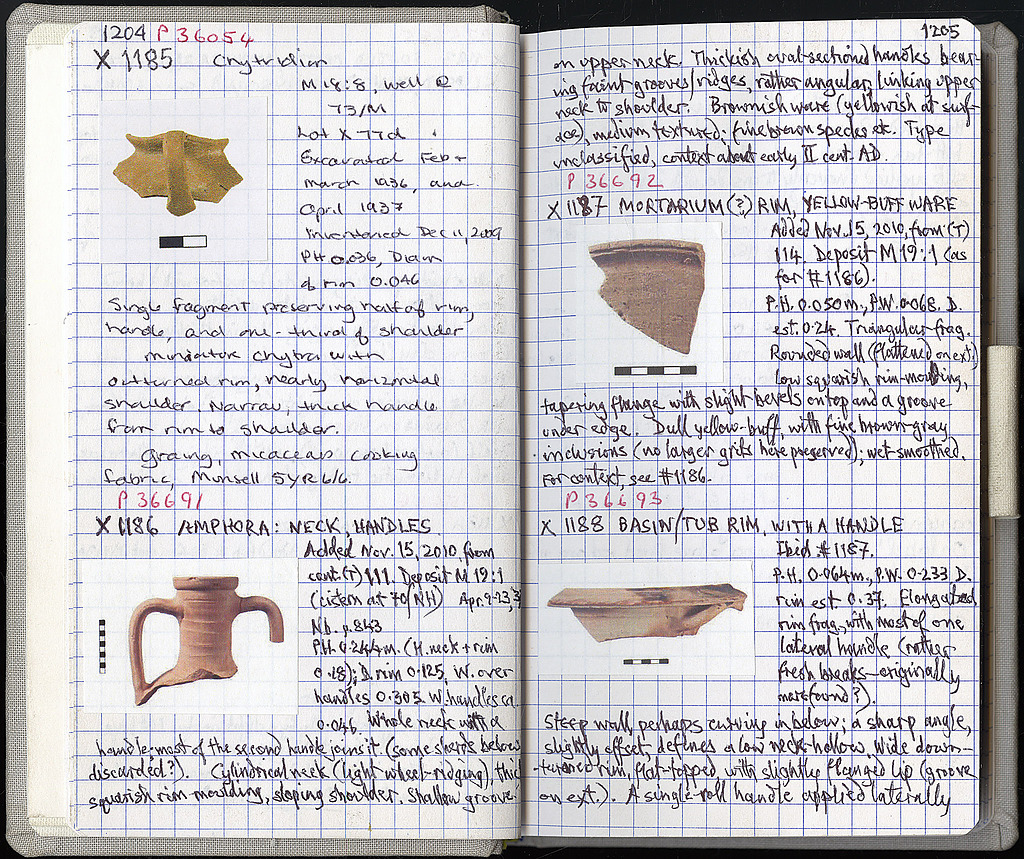 1204 P 36054
X 1185 Chytridion
M 18:8, well @
73/M
Lot X 77d
Excavated Feb +
March 1936, and
April 1937
Inventoried Dec 11, 2009
PH 0.036, Diam
of rim 0.046
Single fragment preserving half of rim,
handle, and one-third of shoulder
miniature chytra with
outturned rim, nearly horizontal
shoulder. Narrow, thick handle
from rim to shoulder.
Graing, micaceous cooking
fabric, Munsell 5YR 6/6.
P 36691
X 1186 AMPHORA: NECK, HANDLES
Added Nov. 15, 2010, from
cont. (T) 111. Deposit M 19:1
(cistern at 70/NH) Apr. 9-23,
Nb. p. 843
P.H. 0.244m. (H. neck + rim
0.18); D. rim 0.125, W. over
handles 0.305. W. handles ca.
0.046. Whole neck with a
handle–most of the second handle joins it (some sherds below
discarded?). Cylindrical neck (light wheel-ridging), thick
squarish rim-moulding, sloping shoulder. Shallow groove
1205
on upper neck. Thickish oval-sectioned handles bear-
ing faint grooves/ridges, rather angular, linking upper
neck to shoulder. Brownish ware (yellowish at surf-
ace), medium textured; fine brown specks etc. Type
unclassified, context about early II cent. AD.
P 36692
X 1187 MORTARIUM (?) RIM, YELLOW-BUFF WARE
Added Nov. 15, 2010, from (T)
114. Deposit M 19:1 (as
for #1186).
P.H. 0.050m., P.W. 0.068, D.
est. 0.24. Triangular frag.
Rounded wall (flattened on ext.)
low squarish rim-moulding,
tapering flange with slight bevels on top and a groove
under edge. Dull yellow-buff, with fine brown-gray
inclusions (no larger grits here preserved); wet-smoothed.
For context, see #1186.
P 36693
X 1188 BASIN/TUB RIM, WITH A HANDLE
Ibid. #1187.
P.H. 0.064m., P.W. 0.233 D.
rim est. 0.37. Elongated
rim frag., with most of one
lateral handle (rather
fresh breaks–originally
more found?).
Steep wall, perhaps curving in below; a sharp angle,
slightly offset, defines a low neck-hollow, wide down-
turned rim, flat-topped, with slightly flanged lip (groove
on ext.). A single-roll handle applied laterally